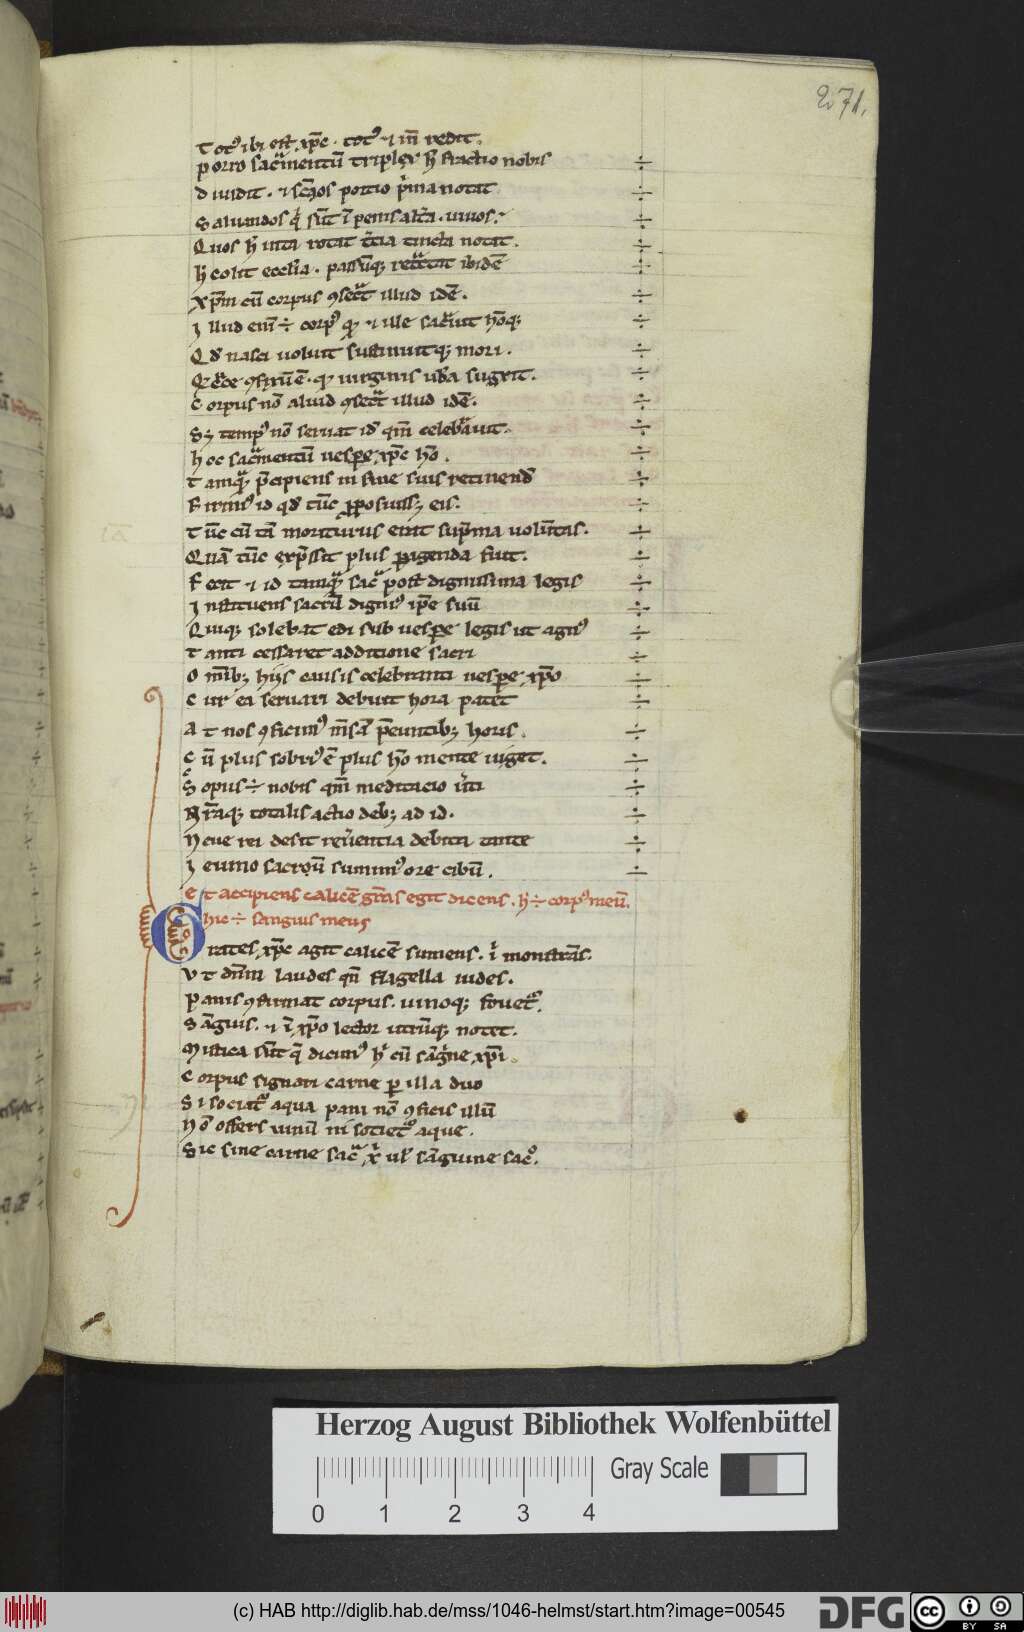 271.
Totꝰ ibi est xp̄c . totꝰ ⁊ in̄ redit.
Porro sacͣmentū triplex h̄ fractio nobis
Diuidit . ⁊ portio p̍ma notat
Saluandos sūt ī penis . uiuos .
Quos h̄ uita rotat t̄cia tincta notat .
h̄ colit eccl̄ia . ibidē
Xp̄m cū corpus ꝯsecͣt illud idē .
Illud eni ÷ corpꝰ ⁊ ille hōq;
Qd̄ nasci uoluit sustinuitq; mori .
uirginis ub̄a suxit .
Corpus nō aliud ꝯsecͣt illud idē .
S; tempꝰ nō seruat id̄ qm̄ celebͣuit .
hoc sacͣmentū uesꝑe xp̄c hō .
Tamqͣ p̄cipiens in fine suis retinend̄
Firmiꝰ id qd̄ tūc eis .
Tūc cū tā moriturus erat sup̄ma volūtas .
Quā tūc exp̄ssit plus ꝑagenda fuit .
Fecit ⁊ id tamqͣ sacͣ post dignissima legis
Instituens sacrū digniꝰ ip̄e suū
Quiq; solebat edi sub uesꝑe legis ut agnꝰ
Tanti cessaret additione sacri
Omīb; hijs causis celebranti uesꝑe xp̄o
Cur ea seruari debuit hora patet
At nos ꝯficimꝰ p̄euntib; horis .
Cū plus sobriꝰ ē plus hō mente uiget .
Sopus ÷ nobis qm̄ meditacio
Nr̄aq; totalis actio deb; ad id .
Neue rei desit reu̍entia debita tante
Ieiuno sacroꝝ sumimꝰ ore cibū .
Et accipiens calicē gr̄as egit dicens . h̄ ÷ corpꝰ meū .
hic ÷ sanguis meus
Grates xp̄c agit calicē sumens . monstrās .
Vt dn̄m laudes qn̄ flagella
Panis ꝯfirmat corpus . uinoq; fouetᷣ .
Sāguis . ⁊ ī xp̄o lector utrūq; notet .
Mistica sūt q̄ dicimꝰ cū sāgͥne xp̄i .
Corpus signari carne ꝑ illa duo
Si sociatᷣ aqua pani nō ꝯficis illū
Nō offers uinū ni societᷣ aque .
Sic sine carne sacͣ sāguine
Herzog August Bibliothek Wolfenbüttel
Gray Scale
0 1 2 3 4
(c) HAB http://diglib.hab.de/mss/1046-helmst/start.htm?image=00545
DFG
cc BY SA